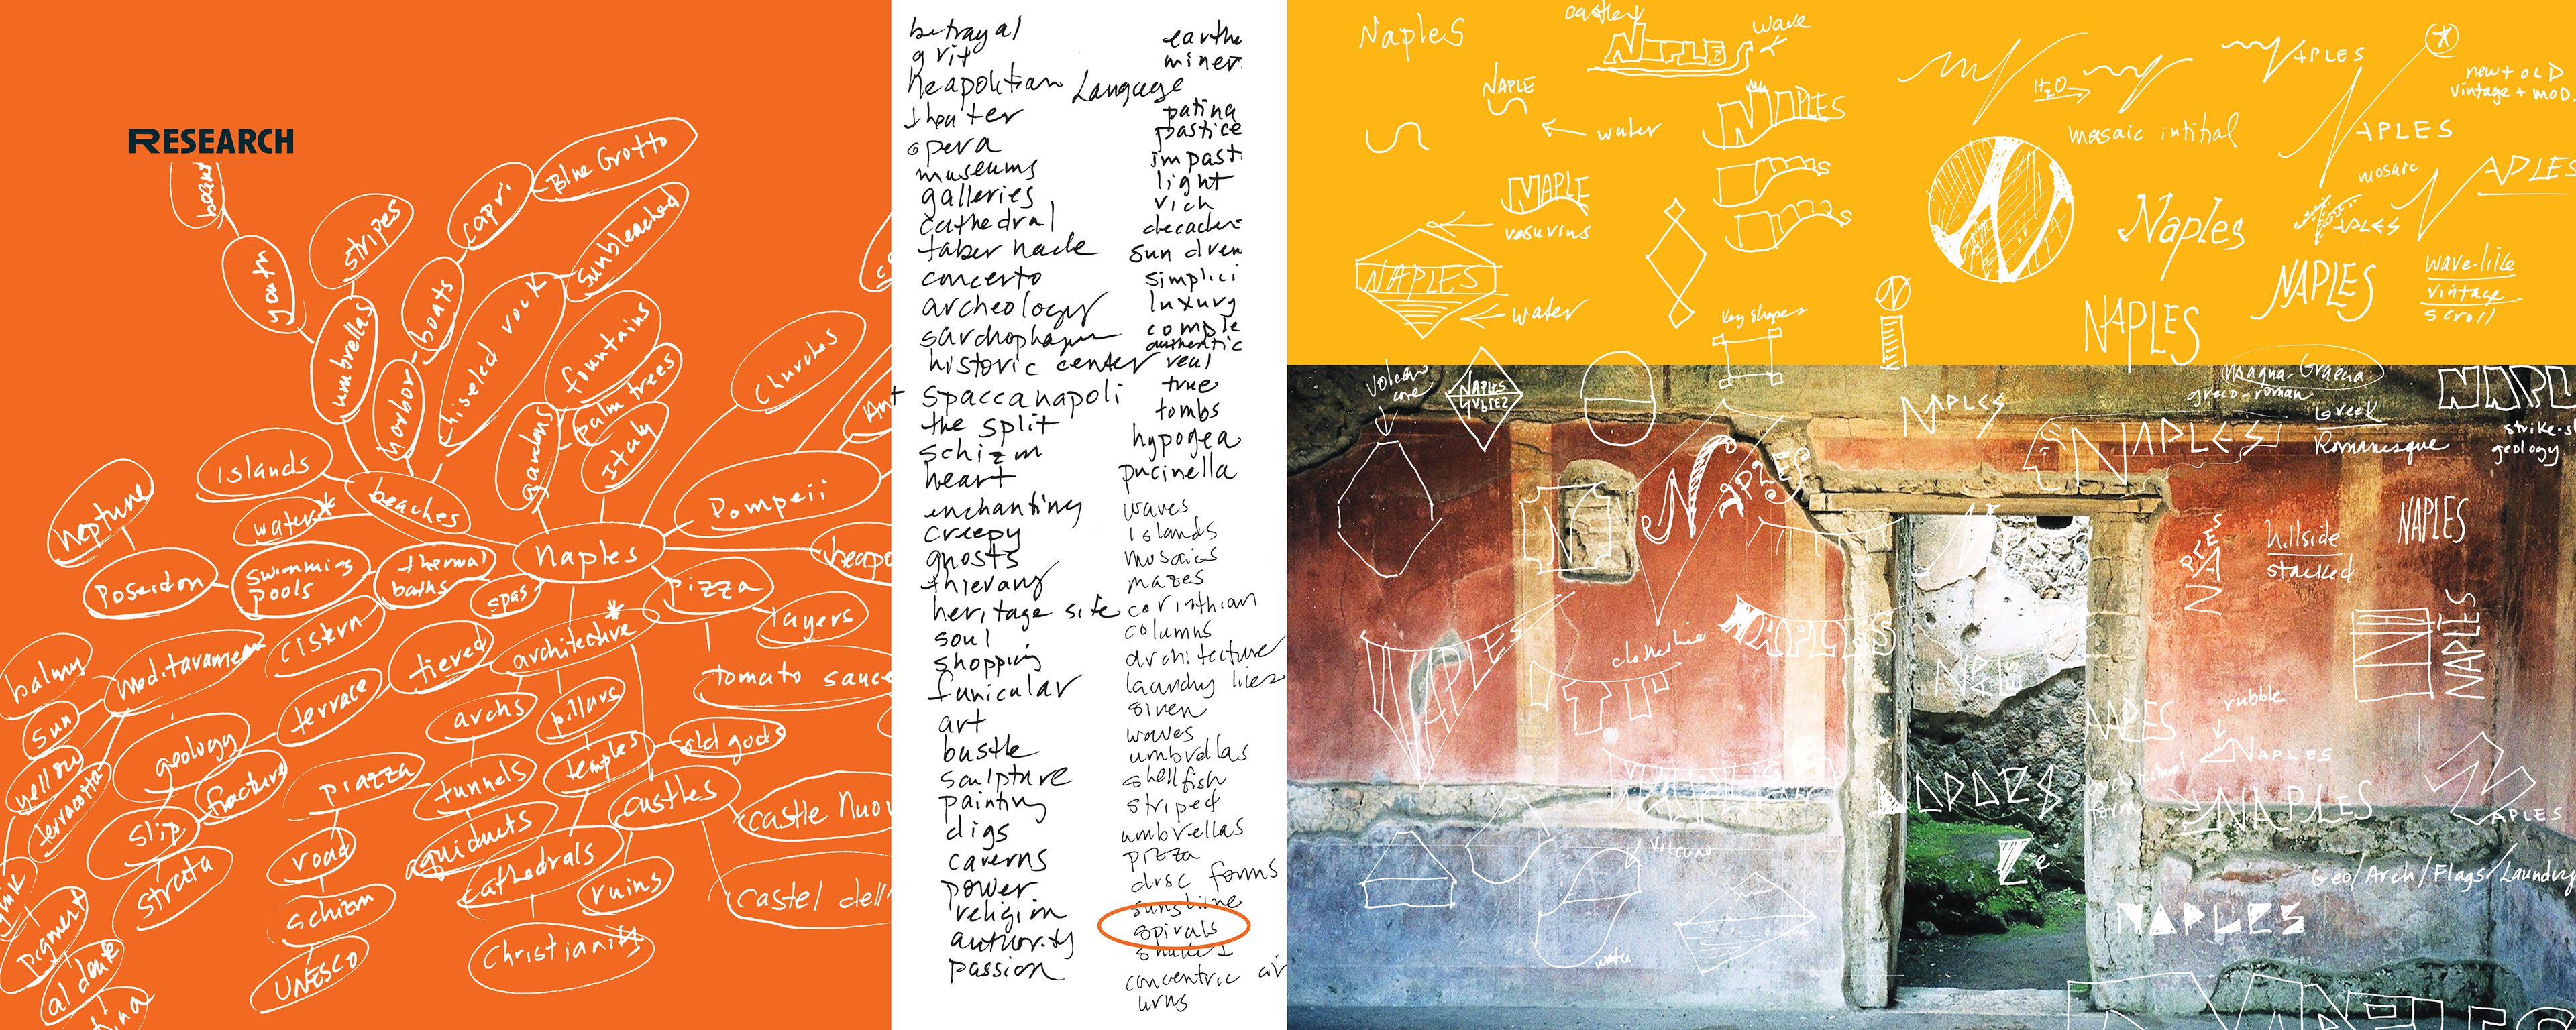 RESEARCH
Blue Grotto
capri
stripes
sunbleached
youth
boats
chiseled rock
umbrellas
harbor
fountains
palm trees
Italy
gardens
Churches
islands
beaches
water*
neptune
Pompeii
Naples
Poseidon
swimming
pools
thermal
baths
spas
pizza
layers
cistern
tiered
architective
*
tomato sauce
balmy
sun
yellow
terracotta
meditaramean
terrace
archs
pillars
old gods
geology
fracture
slip
strata
piazza
tunnels
temples
castles
castle Nuov
road
aquiducts
cathedrals
ruins
castel dell'
schizm
UNESCO
Christianity
pigment
al dente
betrayal
grit
neapolitian Language
theater
opera
museums
galleries
cathedral
tabernacle
concerto
archeology
sarchophagus
historic center
spaccanapoli
the split
schizm
heart
enchanting
creepy
ghosts
thievary
heritage site
soul
shopping
funicular
art
bustle
sculpture
painting
digs
caverns
power
religion
authority
passion
earthe
miner
patina
pastice
impast
light
rich
decaden
sun dren
simplici
luxury
comple
authentic
real
true
tombs
hypogea
pucinella
waves
islands
mosaics
mazes
corinthian
columns
architecture
laundry lines
siren
waves
umbrellas
shellfish
striped
umbrellas
pizza
disc forms
sunshine
spirals
snakes
concentric cir
urns
Naples
castle
wave
NAPLES
NAPLE
water
NAPLES
NAPLE
vesuvius
NAPLES
water
key shapes
H2O
APLES
new + OLD
vintage + mod.
mosaic intitial
APLES
mosaic
APLES
Naples
APLES
NAPLES
NAPLES
wave-like
vintage
scroll
N
volcano
core
NAPLES
NAPLES
Magna-Graena
greco-roman
Greek
Romanesque
NAPLES
NAPL
strike-sl
geology
N
NAPLES
NAPLES
hillside
stacked
NAPLES
NAPLES
clothesline
NAPLES
NAPLES
rubble
NAPLES
architectural
form
NAPLES
APLES
volcano
water
Geo/Arch/Flags/Laundry
NAPLES